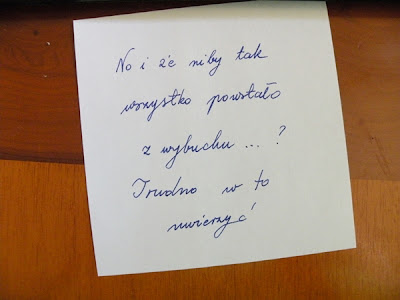 No i że niby tak
wszystko powstało
z wybuchu ... ?
Trudno w to
uwierzyć